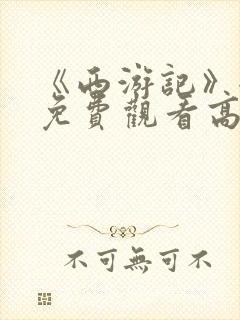 《西游記》
免費觀看高
不可無可不